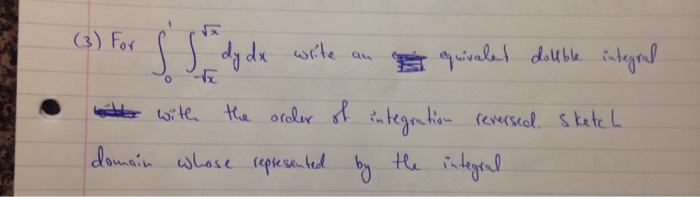 (3) For ∫₀¹ ∫₋√x^√x dy dx write an equivalet double integral
with the order of integration reversed. sketch
domain whose represented by the integral